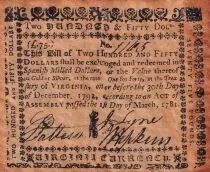 Two HUNDRED & FIFTY DOLL
No
This Bill of Two Hundred and Fifty
Dollars shall be exchanged and redeemed in
Spanish Milled Dollars, or the Value thereof
in Gold or Silver, at the Rate of One for forty, at the Treasury
of VIRGINIA, on or before the 30th Day
of December, 1792, according to an Act of
ASSEMBLY passed the 1st Day of March, 1781.
Hopkins
VIRGINIA CURRENCY.
FIFTY DOLLARS
TWO HUNDRED